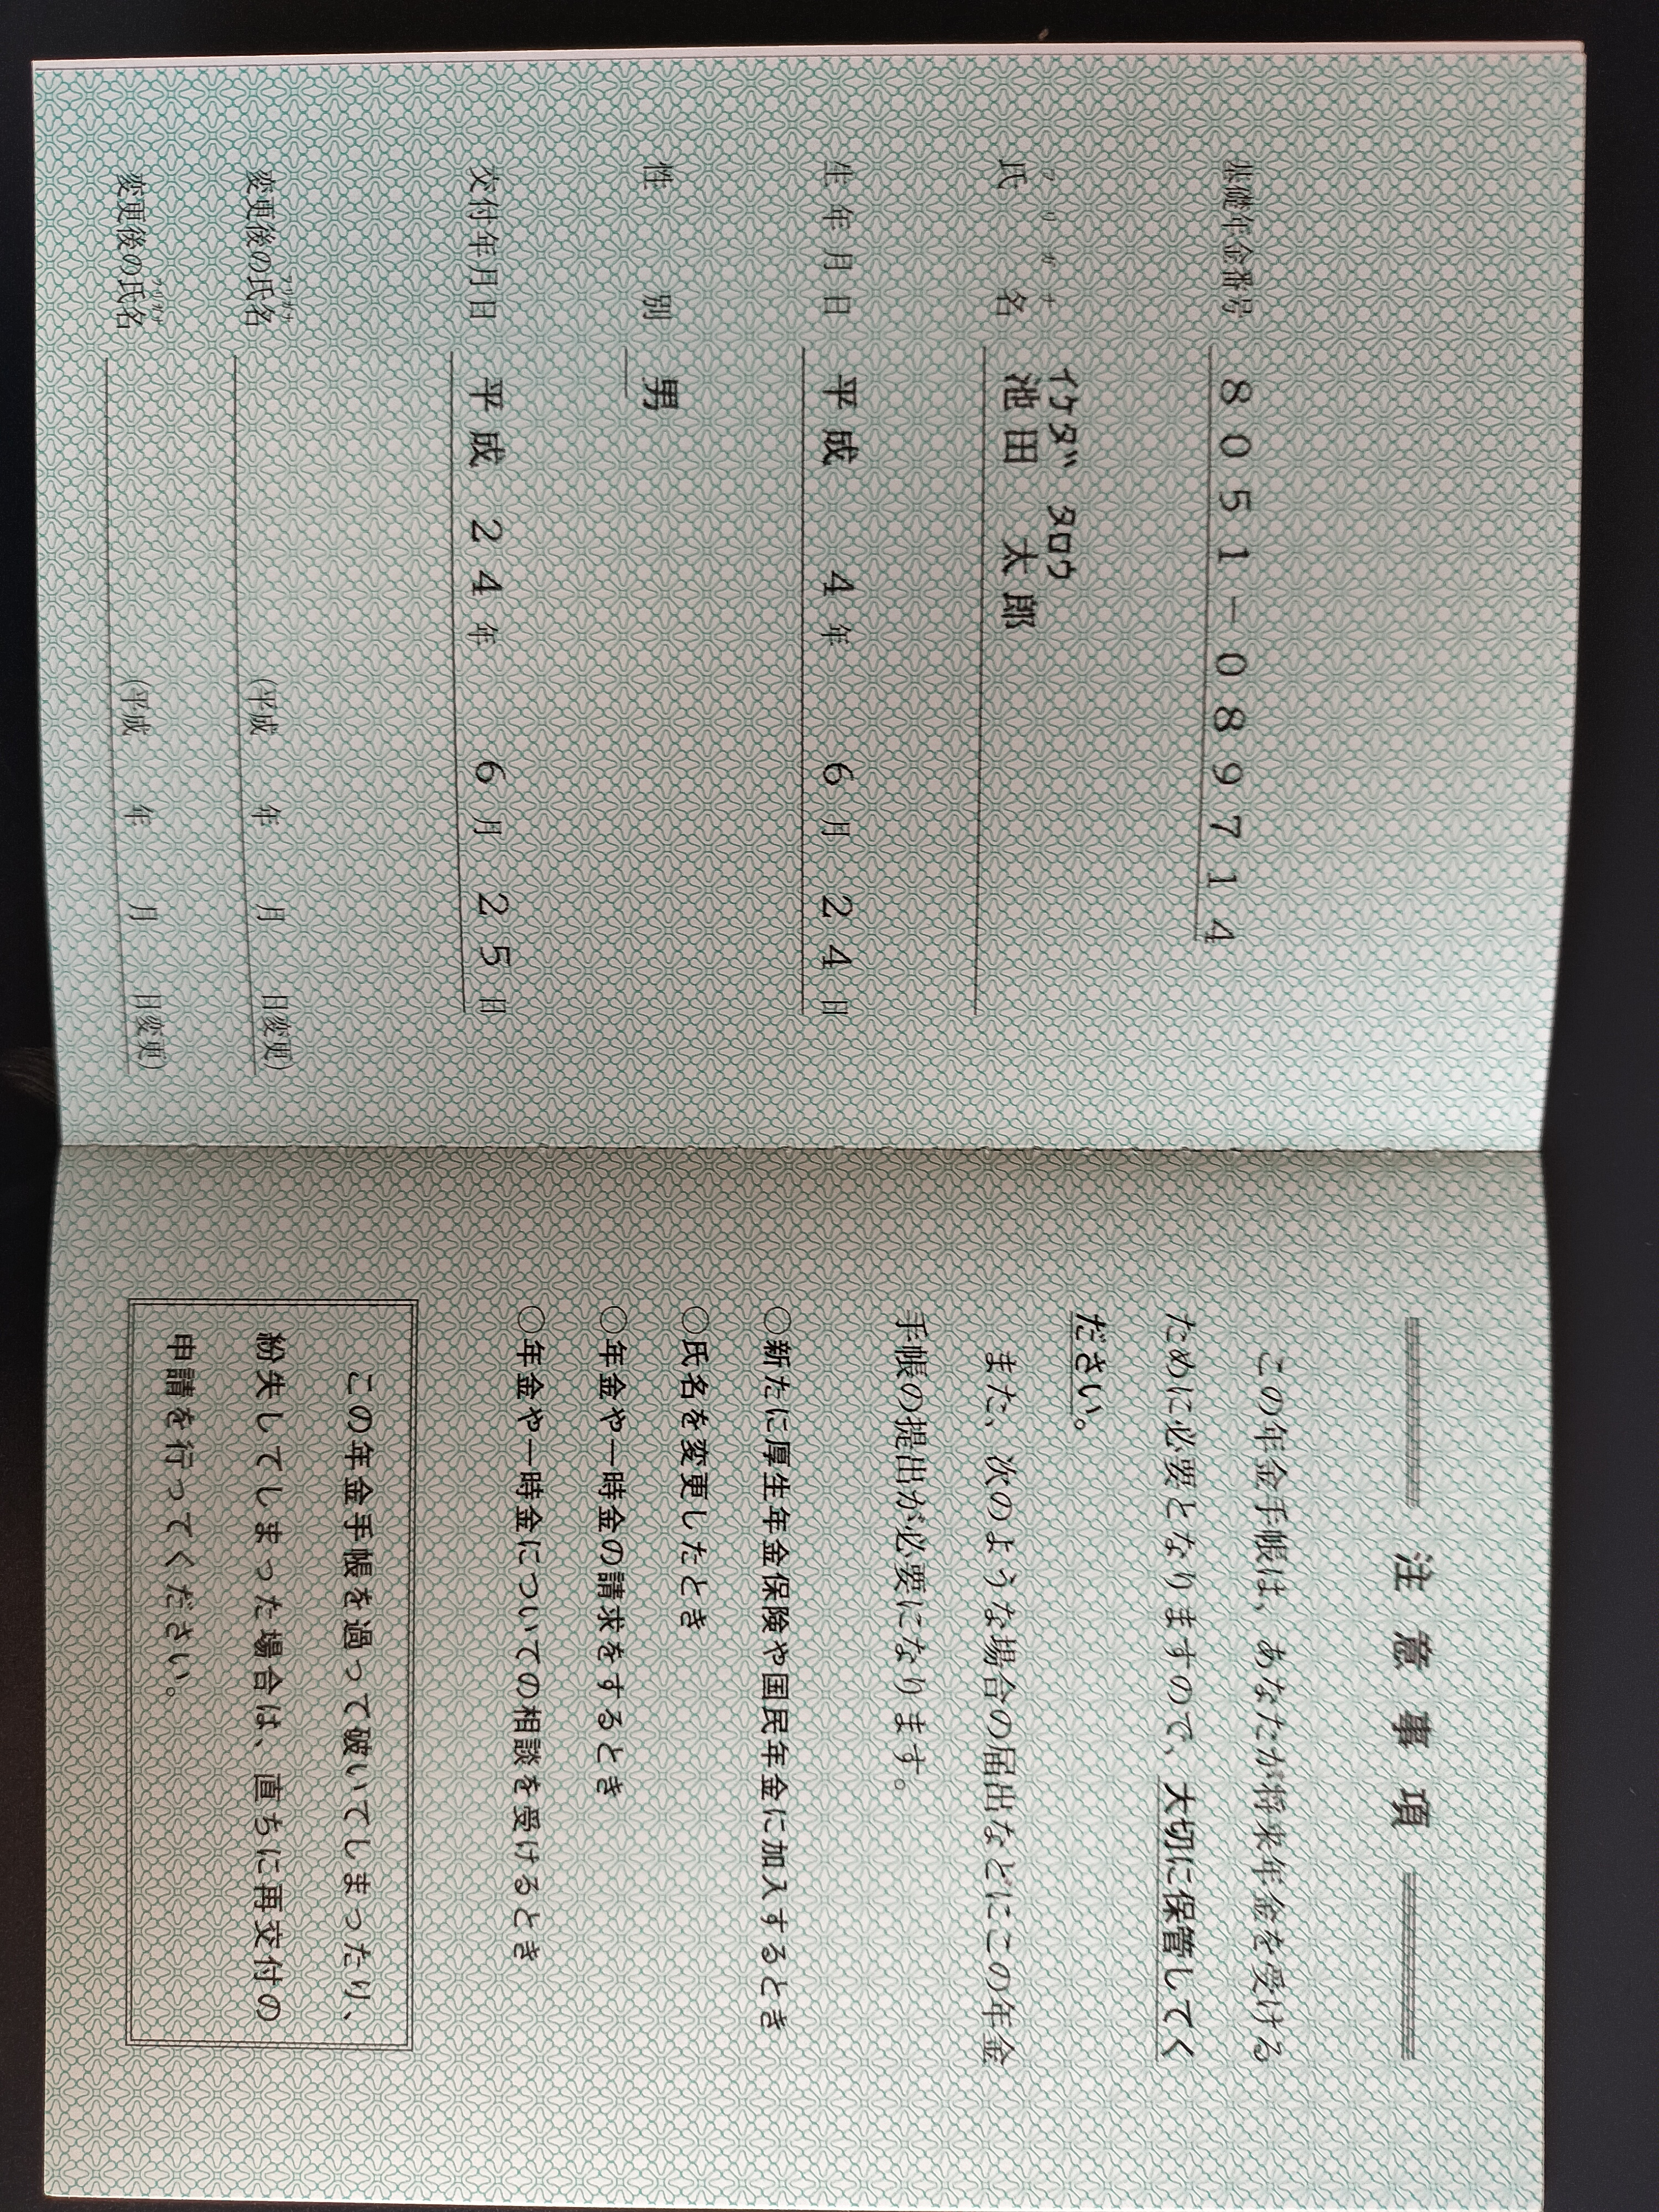 基礎年金番号 8051-089714
フリガナ イケダ タロウ
氏名 池田 太郎
生年月日 平成 4年 6月 24日
性別 男
交付年月日 平成 24年 6月 25日
フリガナ
変更後の氏名 (平成 年 月 日変更)
フリガナ
変更後の氏名 (平成 年 月 日変更)
注意事項
この年金手帳は、あなたが将来年金を受ける
ために必要となりますので、大切に保管してく
ださい。
また、次のような場合の届出などにこの年金
手帳の提出が必要になります。
○新たに厚生年金保険や国民年金に加入するとき
○氏名を変更したとき
○年金や一時金の請求をするとき
○年金や一時金についての相談を受けるとき
この年金手帳を過って破いてしまったり、
紛失してしまった場合は、直ちに再交付の
申請を行ってください。